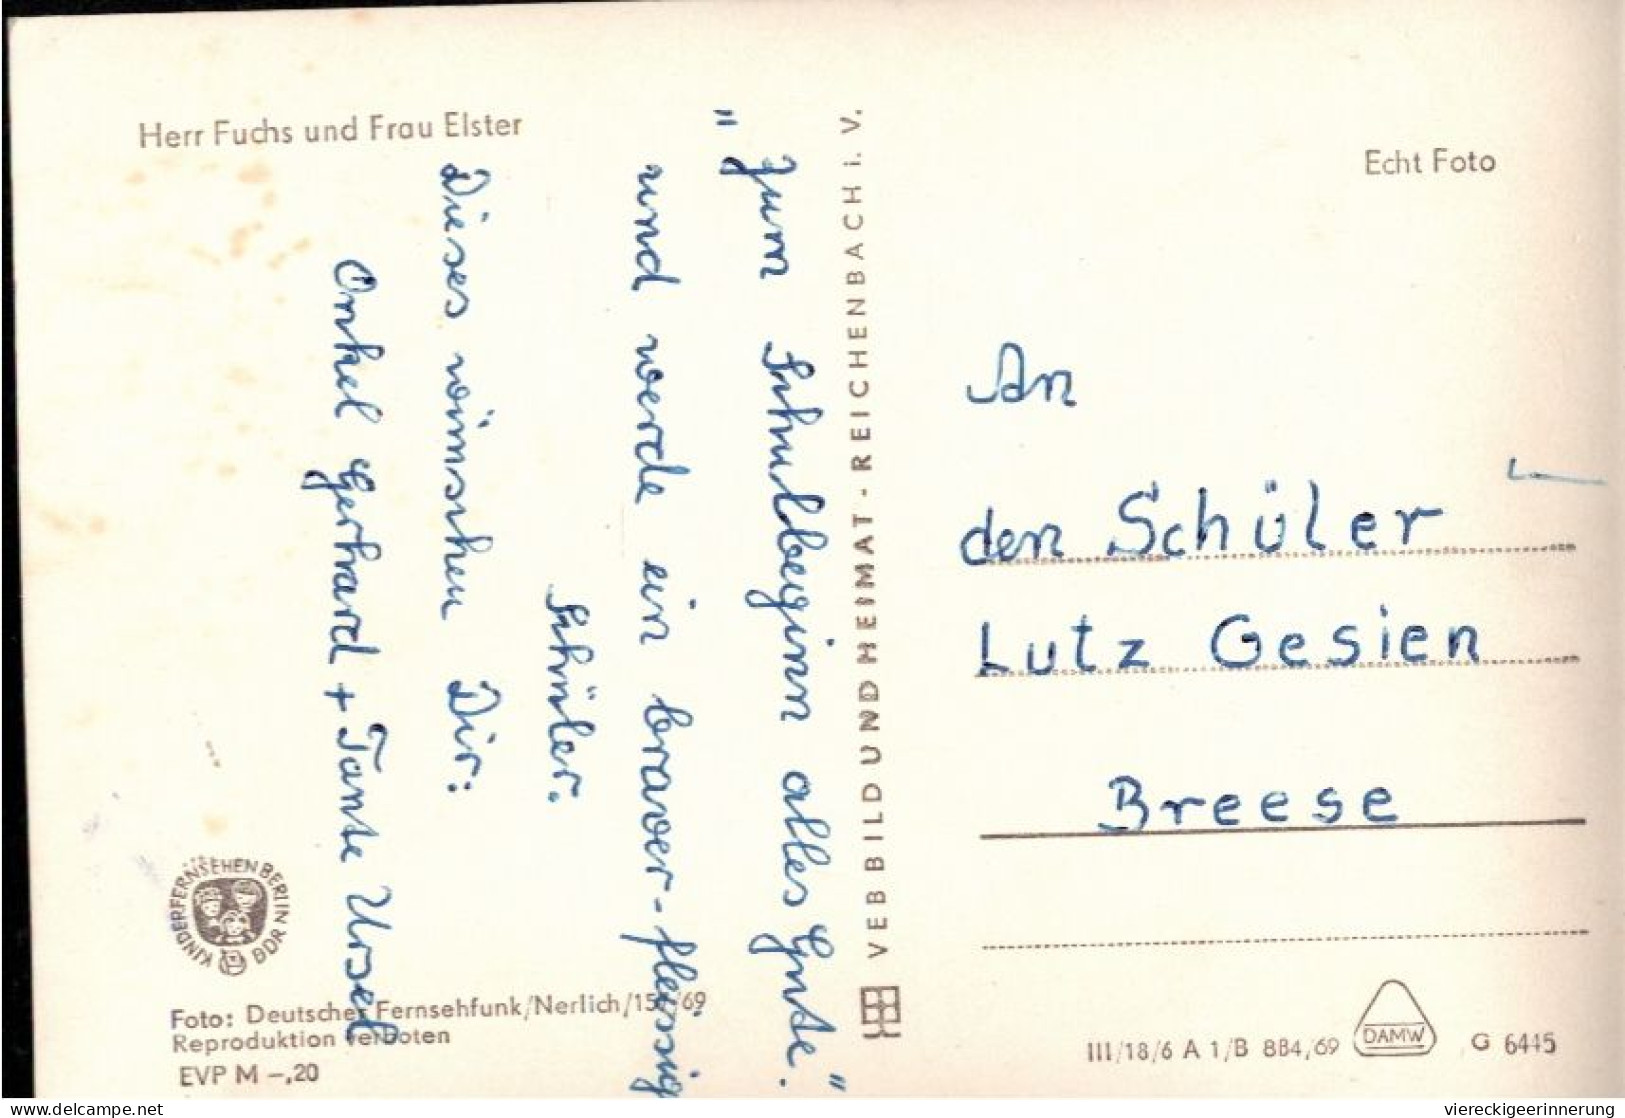 Herr Fuchs und Frau Elster
Echt Foto
"Zum Schulbeginn alles Gute."
und werde ein braver-fleissig
Schüler.
Dieses wünschen Dir:
Onkel Gerhard + Tante Ursel
VEB BILD UND HEIMAT - REICHENBACH i. V.
An
den Schüler
Lutz Gesien
Breese
KINDERFERNSEHEN BERLIN DDR
Foto: Deutscher Fernsehfunk/Nerlich/69
Reproduktion verboten
EVP M –,20
III/18/6 A 1/B 884/69
DAMW
G 6445
delcampe.net
viereckigeerinnerung